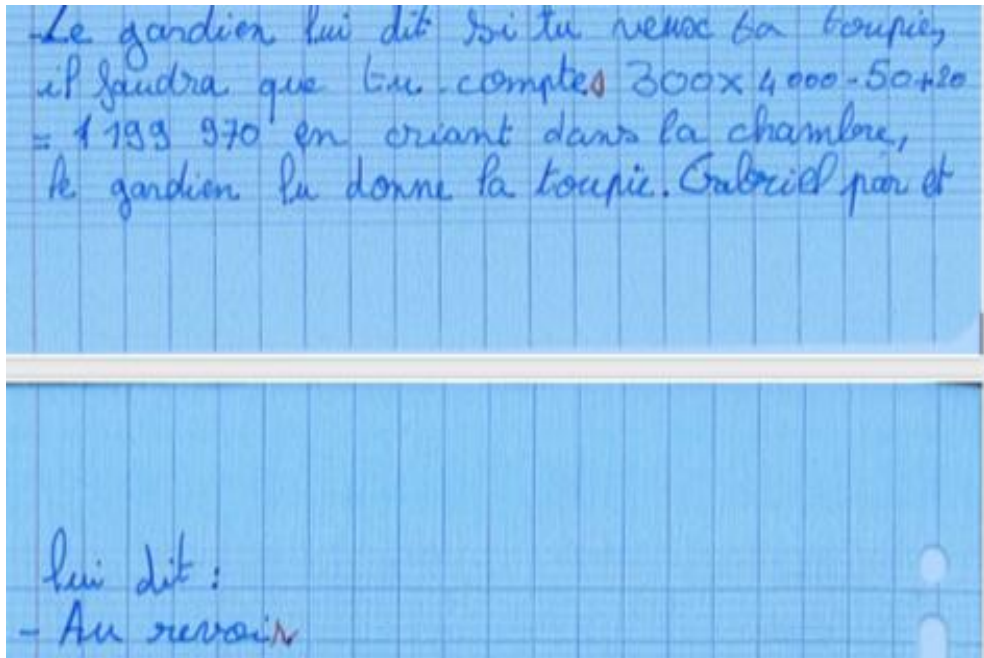 -Le gardien lui dit si tu veux ta toupie,
il faudra que tu comptes 300x4000-50+20
= 1 199 970 en criant dans la chambre,
le gardien lu donne la toupie. Gabriel par et
lui dit :
- Au revoir